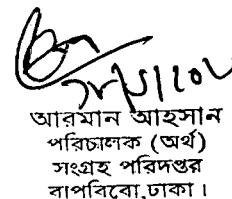 আরমান আহসান
পরিচালক (অর্থ)
সংগ্রহ পরিদপ্তর
বাপবিবো, ঢাকা।